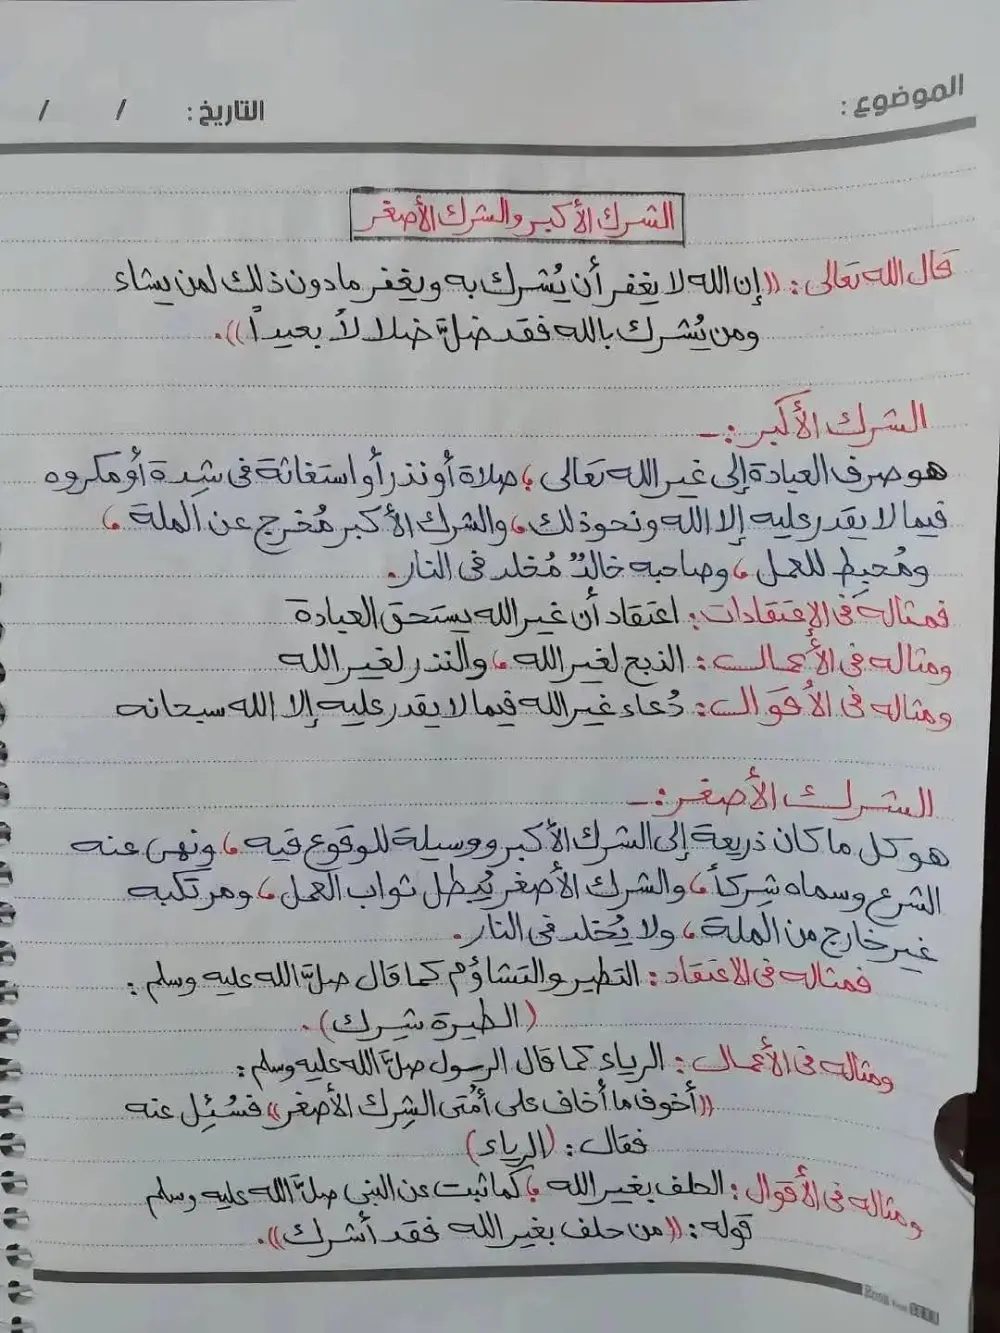 الموضوع :
التاريخ : / /
الشرك الأكبر والشرك الأصغر
قال الله تعالى : ((إن الله لا يغفر أن يُشرك به ويغفر ما دون ذلك لمن يشاء
ومن يُشرك بالله فقد ضلَّ ضلالاً بعيداً)).
الشرك الأكبر :ـ
هو صرف العبادة إلى غير الله تعالى ، صلاة أو نذر أو استغاثة في شِدة أو مكروه
فيما لا يقدر عليه إلا الله ونحو ذلك ، والشرك الأكبر مُخرج عن الملة ،
ومُحبِط للعمل ، وصاحبه خالدٌ مُخلد في النار.
فمثاله في الإعتقادات : اعتقاد أن غير الله يستحق العبادة
ومثاله في الأعمال : الذبح لغير الله ، والنذر لغير الله
ومثاله في الأقوال : دُعاء غير الله فيما لا يقدر عليه إلا الله سبحانه
الشرك الأصغر :ـ
هو كل ما كان ذريعة إلى الشرك الأكبر ووسيلة للوقوع فيه ، ونهى عنه
الشرع وسماه شِركاً ، والشرك الأصغر يُبطل ثواب العمل ، ومرتكبه
غير خارج من الملة ، ولا يُخلد في النار.
فمثاله في الاعتقاد : التطير والتشاؤم كما قال صلَّ الله عليه وسلم :
(الطيرة شِرك).
ومثاله في الأعمال : الرياء كما قال الرسول صلَّ الله عليه وسلم :
((أخوف ما أخاف على أمُتى الشِرك الأصغر)) فسُئِل عنه
فقال : (الرياء)
ومثاله في الأقوال : الحلف بغير الله ، كما ثبت عن النبي صلَّ الله عليه وسلم
قوله : ((من حلف بغير الله فقد أشرك)).